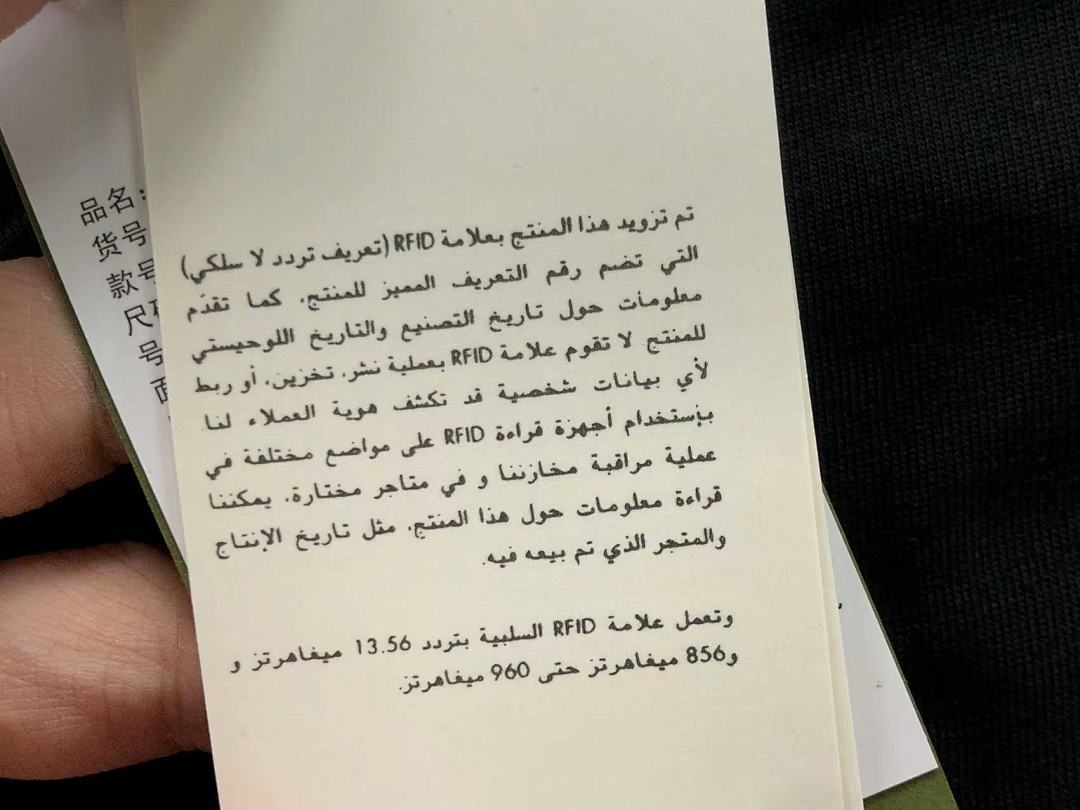 تم تزويد هذا المنتج بعلامة RFID (تعريف تردد لا سلكي)
التي تضم رقم التعريف المميز للمنتج. كما تقدّم
معلومات حول تاريخ التصنيع والتاريخ اللوجيستي
للمنتج لا تقوم علامة RFID بعملية نشر، تخزين، أو ربط
لأي بيانات شخصية قد تكشف هوية العملاء لنا.
بإستخدام أجهزة قراءة RFID على مواضع مختلفة في
عملية مراقبة مخازننا و في متاجر مختارة، يمكننا
قراءة معلومات حول هذا المنتج، مثل تاريخ الإنتاج
والمتجر الذي تم بيعه فيه.
وتعمل علامة RFID السلبية بتردد 13.56 ميغاهرتز و
و856 ميغاهرتز حتى 960 ميغاهرتز.
品名:
货号
款号
尺
号